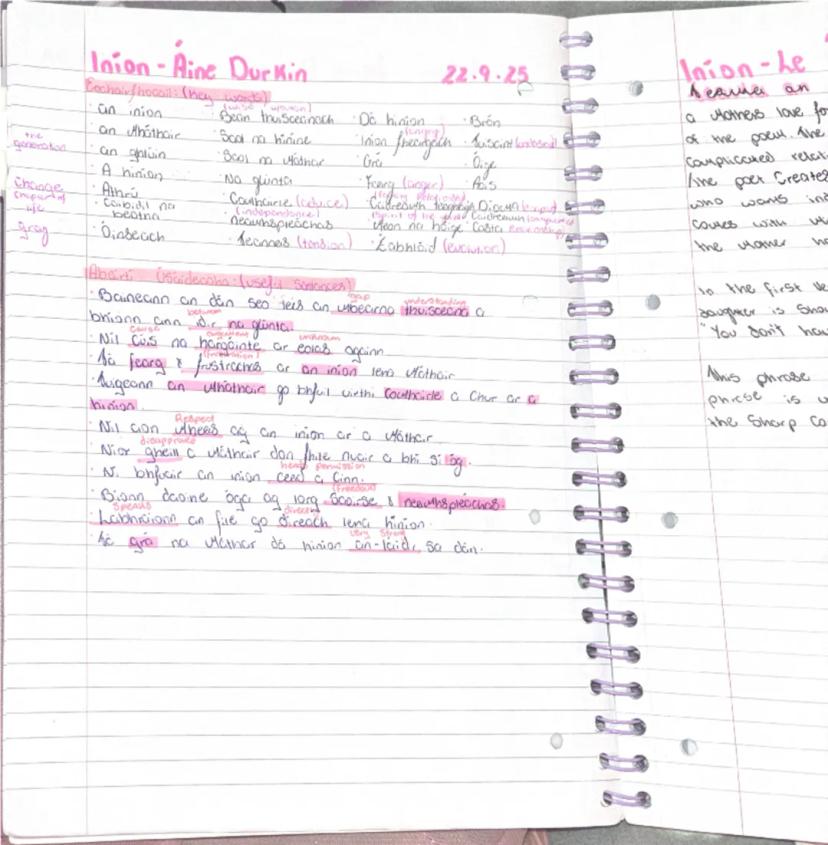 Iníon - Áine Durkin 22.9.25
Eochairfhocail: (key words)
(wise woman)
· an iníon · Bean thuisceanach · Dá hiníon · Brón
(angry)
· an mháthair · Scol na hiníne · Iníon fheargach · Tuiscint
the generation
· an ghlúin · Scol na Máthar · Grá · Óige
· A hiníon · Na glúnta · Fearg (anger) · Aois
change
· Athrú · Comhairle (advice)
(independence)
· Casaidí na beatha · neamhspleáchas · Meon na hóige · Casta
gray
· Óinseach · Teannas (tension) · Éabhlóid (evolution)
Abairtí úsáideacha: (useful sentances)
gap understanding
· Baineann an dán seo leis an mbearna thuisceana a
between
bhíonn ann idir na glúnta.
cause argument unknown
· Níl cúis na hargóinte ar eolas againn
(frustration)
· Tá fearg & frustrachas ar an iníon lena Máthair
· Tuigeann an mháthair go bhfuil uirthi Comhairle a chur ar a
hiníon.
Respect
· Níl aon mheas ag an iníon ar a Máthair
disapproved
· Níor ghéill a Máthair don fhile nuair a bhí sí óg.
permission
· Ní bhfuair an iníon cead a cinn.
(freedom)
· Bíonn daoine óga ag lorg Saoirse & neamhspleáchas.
Speaks directly
· Labhraíonn an file go díreach lena hiníon.
very strong
· Tá grá na Máthar dá hiníon an-láidir sa dán.
Iníon - Le
a mothers love for
of the poem. The
complicated relat
The poet creates
who wants in
comes with
the mother
In the first
daughter is sho
"You don't hav
This phrase
phrase is
the sharp co